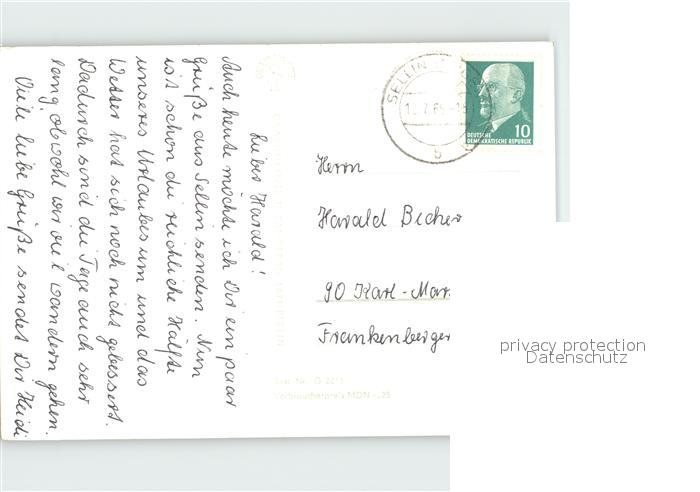 Lieber Harald!
Auch heute möchte ich Dir ein paar
Grüße aus Sellin senden. Nun
ist schon die reichliche Hälfte
unseres Urlaubes um und das
Wetter hat sich noch nicht gebessert.
Dadurch sind die Tage auch sehr
lang obwohl wir viel wandern gehen.
Viele liebe Grüße sendet Dir Heidi
SELLIN
b
DEUTSCHE
DEMOKRATISCHE REPUBLIK
10
Herrn
Harald Becher
90 Karl-Mar
Frankenberger
Verbraucherpreis MDN -,25
privacy protection
Datenschutz